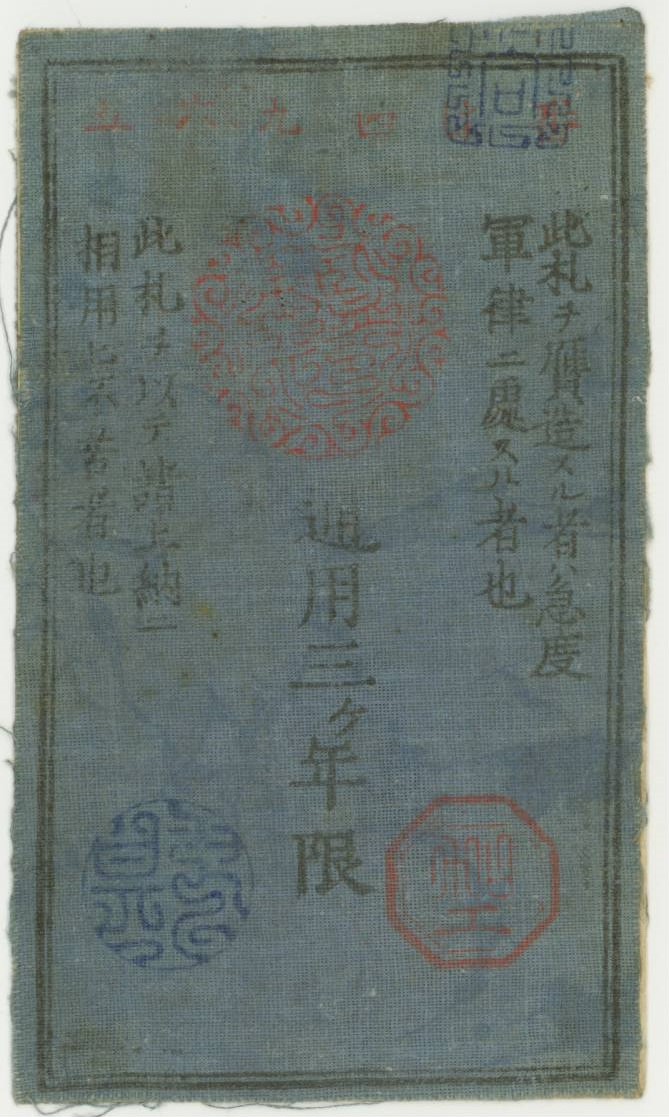 四九六五
此札ヲ贋造スル者ハ急度
軍律ニ處スル者也
通用三ヶ年限
此札ヲ以テ諸上納ニ
相用ヒ不苦者也